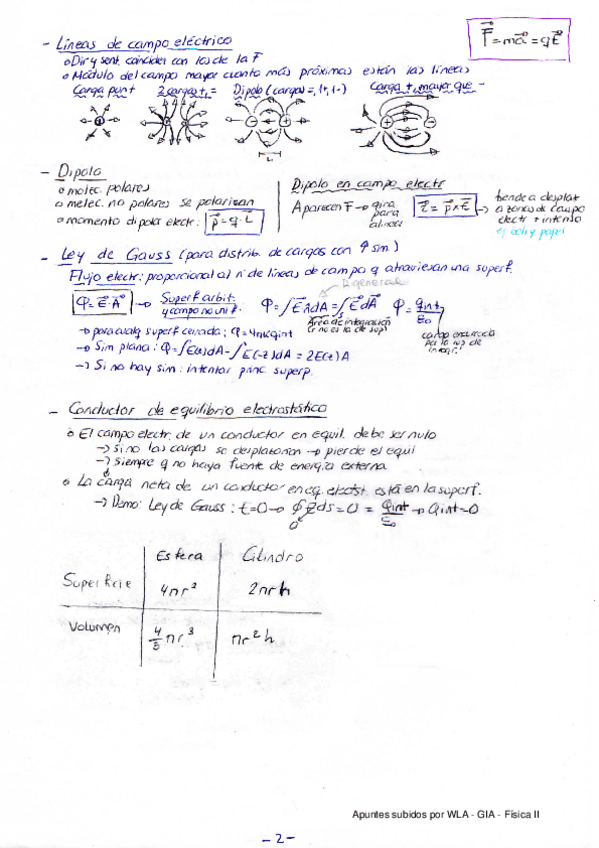 - Líneas de campo eléctrico
F⃗ = ma⃗ = qE⃗
o Dir y sent. coinciden con los de la F⃗
o Módulo del campo mayor cuanto más próximas están las líneas
Carga punt 2 cargas +, = Dipolo (cargas =, 1+, 1-) Carga +, mayor que -
L
- Dipolo
o molec. polares
o molec. no polares se polarizan
o momento dipolar electr: p⃗ = q·L⃗
Dipolo en campo electr
Aparecen F → gira para alinear
τ⃗ = p⃗ × E⃗
→ tiende a desplat a zonas de campo electr + intenso
ej boli y papel
- Ley de Gauss (para distrib. de cargas con ↑ sim)
Flujo electr: proporcional al nº de líneas de campo q atraviesan una superf.
general
Φ = E⃗·A⃗ → Superf arbit. y campo no unif. Φ = ∫E⃗ n̂ dA = ∫E⃗ dA⃗ Φ = qint/ε0
Area de integración (si no es la de sup)
carga encerrada por la sup de integr!
→ para cualq superf cerrada: Φ = 4πkqint
→ Sim plana: Φ = ∫E(z)dA - ∫E(-z)dA = 2E(z)A
→ Si no hay sim: intentar princ superp.
- Conductor de equilibrio electrostático
o El campo electr. de un conductor en equil. debe ser nulo
→ Si no las cargas se desplazarían → pierde el equil
→ Siempre q no haya fuente de energía externa
o La carga neta de un conductor en eq. electrost. está en la superf.
→ Demo: Ley de Gauss: E=0 → ∮E⃗ds = 0 = qint/ε0 → Qint=0
Esfera Cilindro
Superficie 4πr² 2πrh
Volumen 4/3 πr³ πr²h
Apuntes subidos por WLA - GIA - Física II
- 2 -